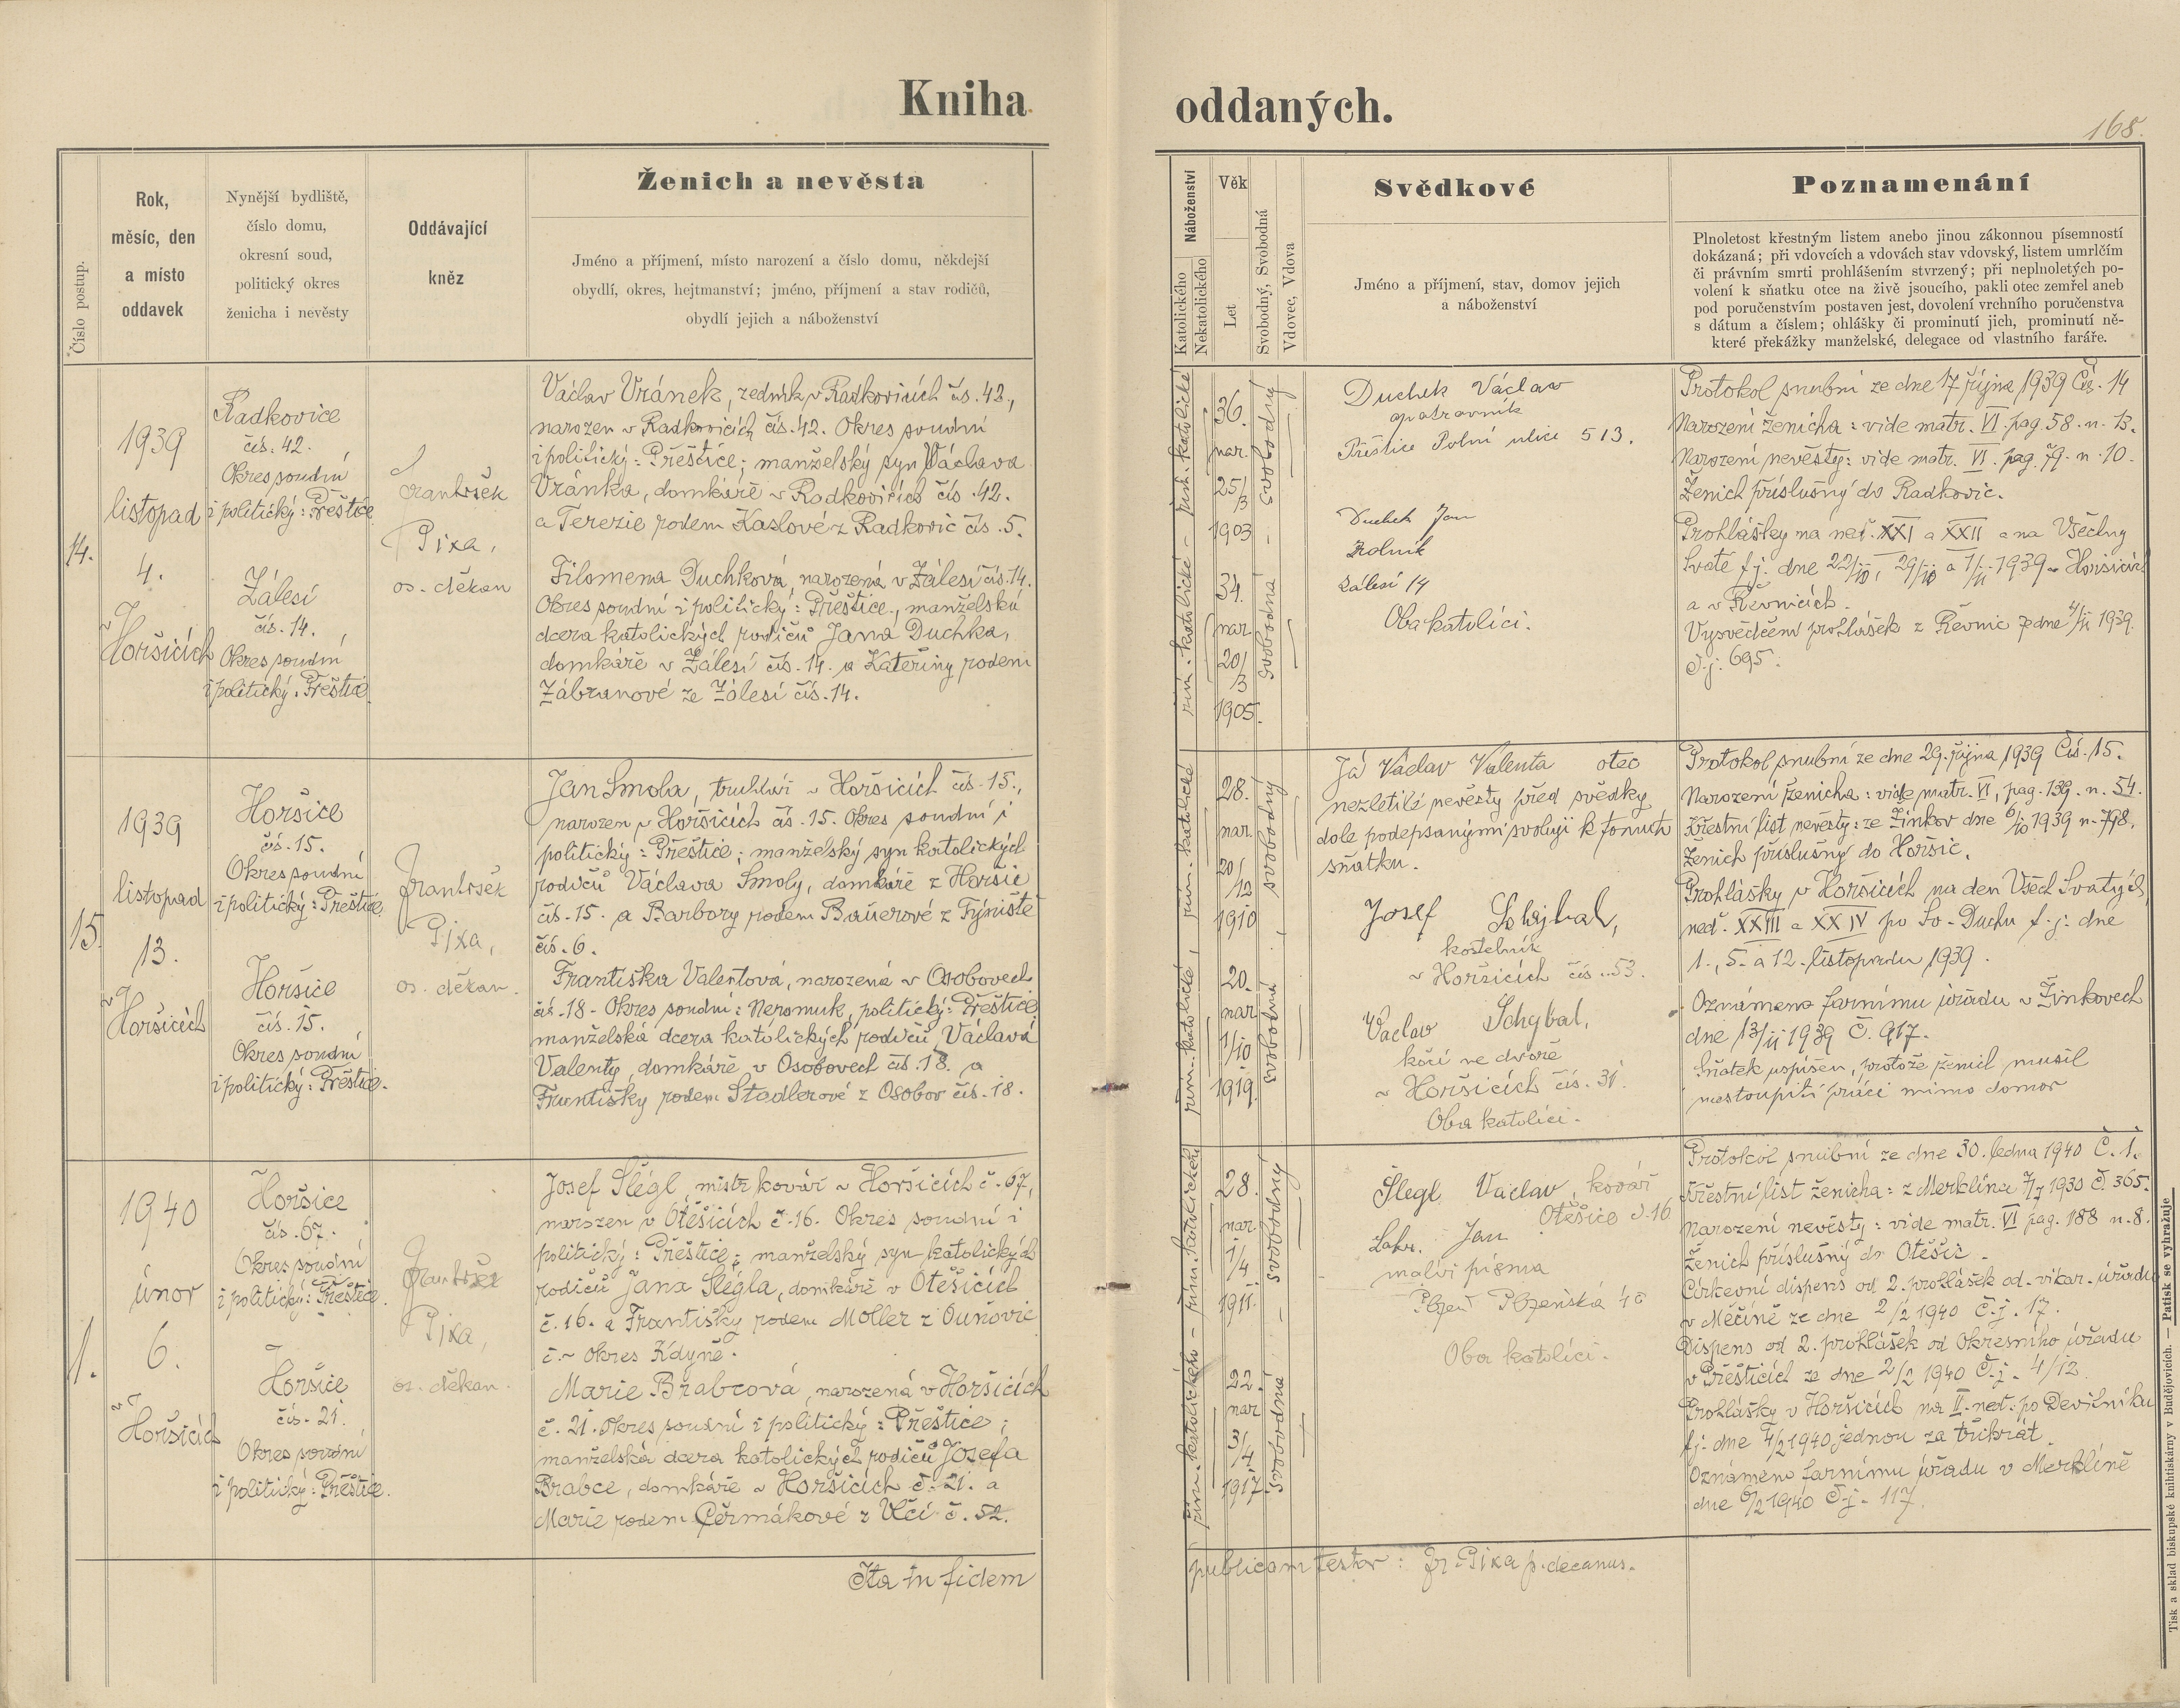 Kniha oddaných.
168.
Číslo postup.
Rok,
měsíc, den
a místo
oddavek
Nynější bydliště,
číslo domu,
okresní soud,
politický okres
ženicha i nevěsty
Oddávající
kněz
Ženich a nevěsta
Jméno a příjmení, místo narození a číslo domu, někdejší
obydlí, okres, hejtmanství; jméno, příjmení a stav rodičů,
obydlí jejich a náboženství
Náboženství
Katolického
Nekatolického
Věk
Let
Svobodný, Svobodná
Vdovec, Vdova
Svědkové
Jméno a příjmení, stav, domov jejich
a náboženství
Poznamenání
Plnoletost křestným listem anebo jinou zákonnou písemností
dokázaná; při vdovcích a vdovách stav vdovský, listem umrlčím
či právním smrti prohlášením stvrzený; při neplnoletých po-
volení k sňatku otce na živě jsoucího, pakli otec zemřel aneb
pod poručenstvím postaven jest, dovolení vrchního poručenstva
s dátum a číslem; ohlášky či prominutí jich, prominutí ně-
které překážky manželské, delegace od vlastního faráře.
14.
1939
listopad
4.
v
Horšicích
Radkovice
čís. 42.
Okres soudní
i politický: Přeštice
Zálesí
čís. 14.
Okres soudní
i politický: Přeštice
František
Pixa,
os. děkan
Václav Vránek, zedník v Radkovicích čís. 42.,
narozen v Radkovicích čís. 42. Okres soudní
i politický: Přeštice; manželský syn Václava
Vránka, domkáře v Radkovicích čís. 42.
a Terezie rodem Kaslové z Radkovic čís. 5.
Filomena Duchková, narozená v Zálesí čís. 14.
Okres soudní i politický: Přeštice, manželská
dcera katolických rodičů Jana Duchka,
domkáře v Zálesí čís. 14. a Kateřiny rodem
Zábranové ze Zálesí čís. 14.
řím. katolické - řím. katolické
36.
nar.
25/3
1903
34.
nar.
20/3
1905.
svobodná - svobodný
Duchek Václav
opatrovník
Přeštice Polní ulice 513.
Duchek Jan
Rolník
Zálesí 14
Oba katolíci.
Protokol snubní ze dne 17 října 1939 Čís. 14
Narození ženicha: vide matr. VI. pag. 58. n. 13.
Narození nevěsty: vide matr. VI. pag. 79. n. 10.
Ženich příslušný do Radkovic.
Prohlášky na neď. XXI a XXII a na Všechny
Svaté t. j. dne 22/10, 29/10 a 1/11 1939 v Horšicích
a v Řevnicích.
Vysvědčení prohlášek z Řevnic ze dne 4/11 1939
č. j. 695.
15.
1939
listopad
13.
v
Horšicích
Horšice
čís. 15.
Okres soudní
i politický: Přeštice
Horšice
čís. 15.
Okres soudní
i politický: Přeštice.
František
Pixa,
os. děkan.
Jan Smola, truhlář v Horšicích čís. 15.,
narozen v Horšicích čís. 15. Okres soudní i
politický: Přeštice; manželský syn katolických
rodičů Václava Smoly, domkáře z Horšic
čís. 15. a Barbory rodem Bauerové z Týniště
čís. 6.
Františka Valentová, narozená v Osobovech
čís. 18. Okres soudní: Nepomuk, politický: Přeštice
manželská dcera katolických rodičů Václava
Valenty, domkáře v Osobovech čís. 18. a
Františky rodem Stadlerové z Osobov čís. 18.
řím. katolické, řím. katolické
28.
nar.
20/12
1910
20.
nar.
1/10
1919.
svobodná ; svobodný
Já Václav Valenta otec
nezletilé nevěsty před svědky
dole podepsanými svoluji k tomuto
sňatku.
Josef Schybal,
kostelník
v Horšicích čís. 53.
Václav Schybal,
kočí ve dvoře
v Horšicích čís. 31.
Oba katolíci.
Protokol snubní ze dne 29. října 1939 Čís. 15.
Narození ženicha: vide matr. VI, pag. 139. n. 54.
Křestní list nevěsty: ze Žinkov dne 6/10 1939 n. 798.
Ženich příslušný do Horšic.
Prohlášky v Horšicích na den Všech Svatých,
neď. XXIII a XXIV po Sv. Duchu t. j. dne
1., 5. a 12. listopadu 1939.
Oznámeno farnímu úřadu v Žinkovech
dne 13/11 1939 Č. 917.
Sňatek uspíšen, protože ženich musil
nastoupiti práci mimo domov
1.
1940
únor
6.
v
Horšicích
Horšice
čís. 67.
Okres soudní
i politický: Přeštice
Horšice
čís. 21.
Okres soudní
i politický: Přeštice.
František
Pixa,
os. děkan.
Josef Šlégl, mistr kovář v Horšicích č. 67,
narozen v Otěšicích č. 16. Okres soudní i
politický: Přeštice; manželský syn katolických
rodičů Jana Šlégla, domkáře v Otěšicích
č. 16. a Františky rodem Moller z Ouňovic
č. ~ okres Kdyně.
Marie Brabcová, narozená v Horšicích
č. 21. Okres soudní i politický: Přeštice;
manželská dcera katolických rodičů Josefa
Brabce, domkáře v Horšicích č. 21. a
Marie rodem Čermákové z Vlčí č. 52.
28.
nar.
1/4
1911.
22.
nar
3/4
1917
svobodná - svobodný
Šlegl Václav, kovář
Otěšice č. 16
Jan
malíř písma
Plzeň Plzeňská
Oba katolíci.
Protokol snubní ze dne 30. ledna 1940 Č. 1.
Křestní list ženicha: z Merklína 7/7 1930 č. 365.
Narození nevěsty: vide matr. VI pag. 188 n. 8.
Ženich příslušný do Otěšic.
Církevní dispens od 2. prohlášek od vikar. úřadu
v Měčíně ze dne 2/2 1940 č. j. 17.
Dispens od 2. prohlášek od Okresního úřadu
v Přešticích ze dne 2/2 1940 Č. j. 4/12
Prohlášky v Horšicích na II. neď. po Devítníku
t. j. dne 4/2 1940 jednou za třikrát
Oznámeno farnímu úřadu v Merklíně
dne 6/2 1940 Č. j. 117.
Ita in fidem publicam testor: Fr. Pixa p. decanus.
Tisk a sklad biskupské knihtiskárny v Budějovicích. — Patisk se vyhražuje